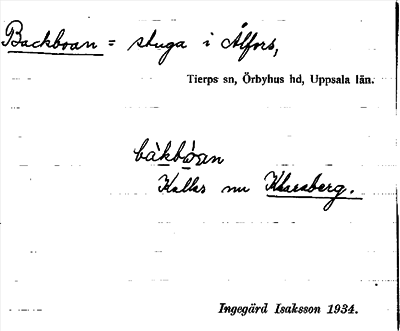 Backboan = stuga i Ålfors,
Tierps sn, Örbyhus hd, Uppsala län.
bàkbòan
Kallas nu Klaraberg.
Ingegärd Isaksson 1934.